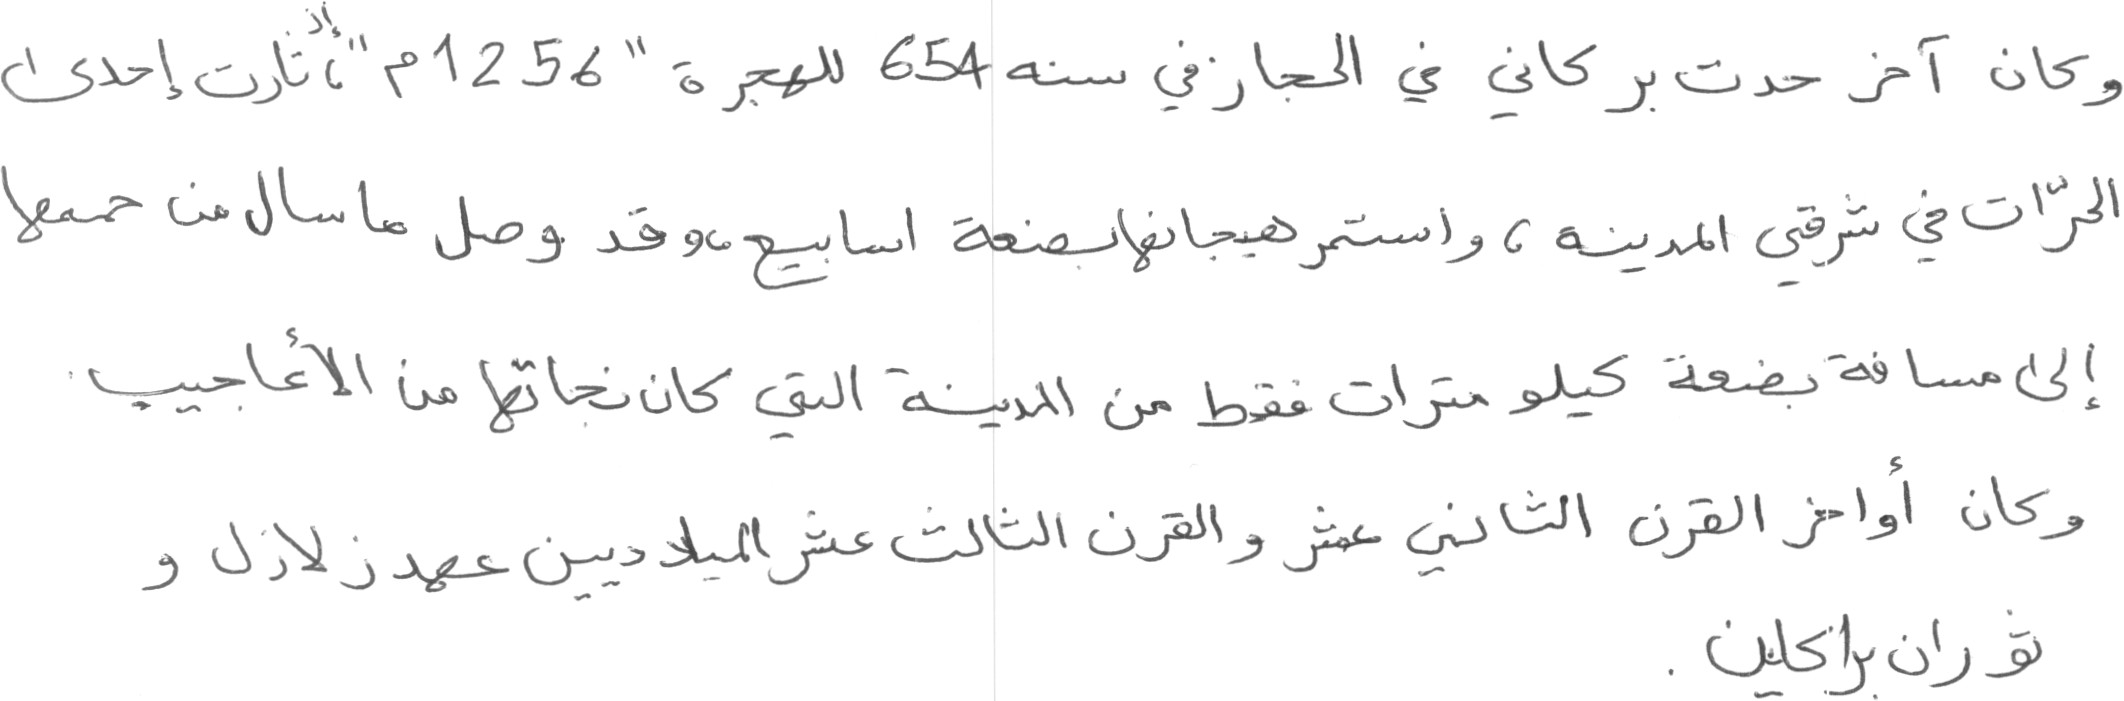 وكان آخر حدث بركاني في الحجاز في سنه 654 للهجرة "1256م"، إذ ثارت إحدى
الحرّات في شرقي المدينه، واستمر هيجانها بضعة اسابيع، وقد وصل ما سال من حممها
إلى مسافة بضعة كيلو مترات فقط من المدينة التي كان نجاتها من الأعاجيب.
وكان أواخر القرن الثاني عشر والقرن الثالث عشر الميلاديين عهد زلازل و
ثوران براكين.